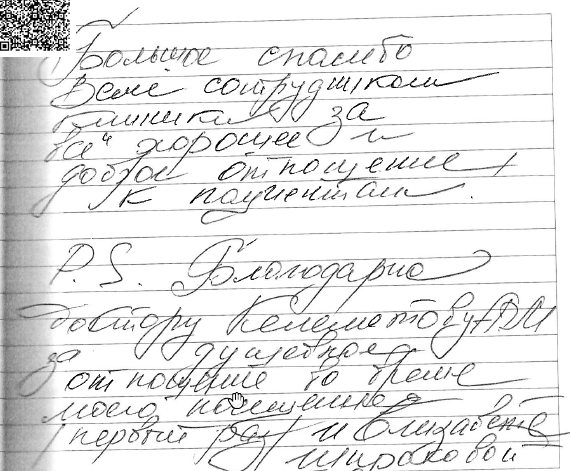 Большое спасибо
Всем сотрудникам
клиники за
хорошее и
доброе отношение
к пациентам.
P.S. Благодарна
доктору
за душевное
отношение во время
моего посещения
первый раз и Елизавете
Широковой